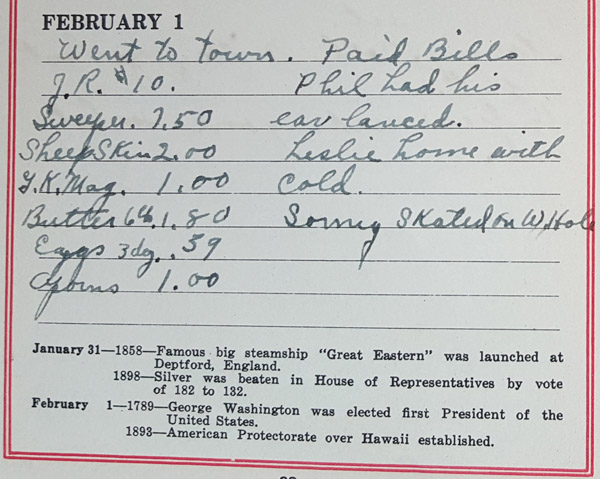 FEBRUARY 1
Went to town. Paid Bills
J.R. $10. Phil had his
Sweeper. 7.50 ear lanced.
Sheep Skin 2.00 Leslie home with
Y.K. Mag. 1.00 cold.
Butter 6 lb. 1.80 Sonny Skated on W. Hole
Eggs 3 doz. .59
1.00
January 31—1858—Famous big steamship "Great Eastern" was launched at
Deptford, England.
1898—Silver was beaten in House of Representatives by vote
of 182 to 132.
February 1—1789—George Washington was elected first President of the
United States.
1893—American Protectorate over Hawaii established.